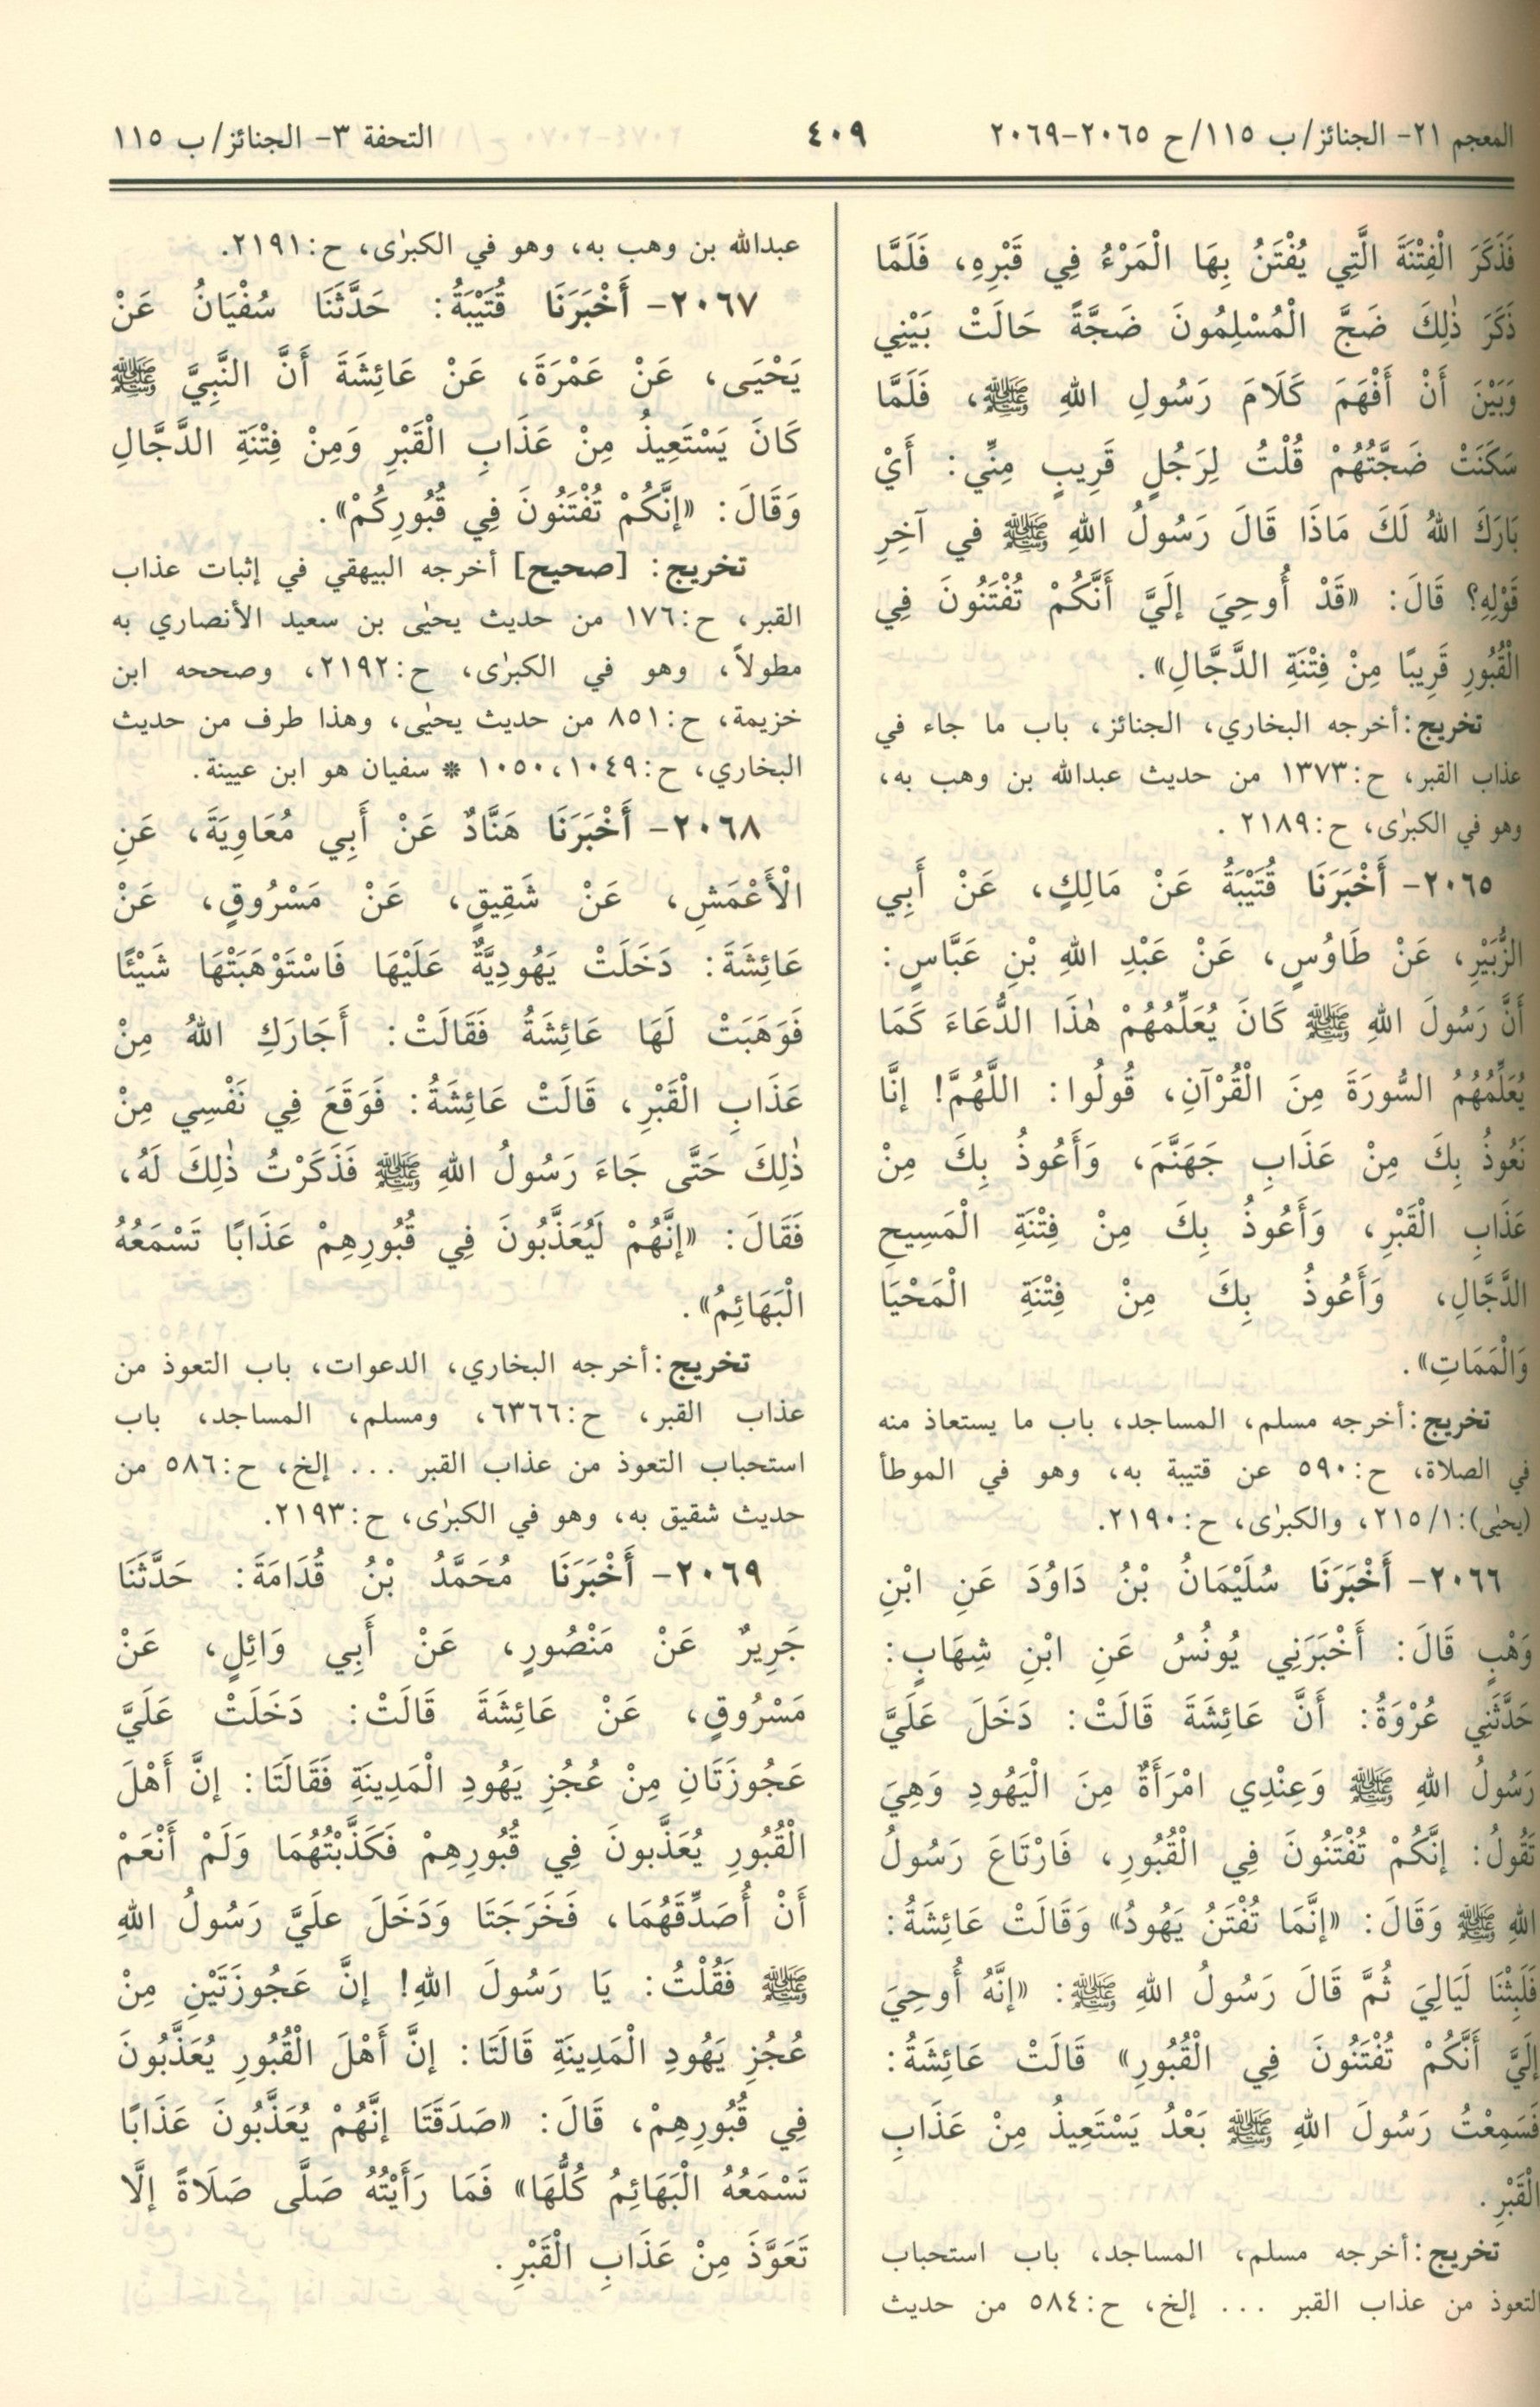 المعجم ٢١- الجنائز/ ب ١١٥/ ح ٢٠٦٥-٢٠٦٩
٤٠٩
التحفة ٣- الجنائز/ ب ١١٥
فَذَكَرَ الْفِتْنَةَ الَّتِي يُفْتَنُ بِهَا الْمَرْءُ فِي قَبْرِهِ، فَلَمَّا
ذَكَرَ ذٰلِكَ ضَجَّ الْمُسْلِمُونَ ضَجَّةً حَالَتْ بَيْنِي
وَبَيْنَ أَنْ أَفْهَمَ كَلَامَ رَسُولِ اللهِ ﷺ، فَلَمَّا
سَكَنَتْ ضَجَّتُهُمْ قُلْتُ لِرَجُلٍ قَرِيبٍ مِنِّي: أَيْ
بَارَكَ اللهُ لَكَ مَاذَا قَالَ رَسُولُ اللهِ ﷺ في آخِرِ
قَوْلِهِ؟ قَالَ: «قَدْ أُوحِيَ إلَيَّ أَنَّكُمْ تُفْتَنُونَ فِي
الْقُبُورِ قَرِيبًا مِنْ فِتْنَةِ الدَّجَّالِ».
تخريج: أخرجه البخاري، الجنائز، باب ما جاء في
عذاب القبر، ح:١٣٧٣ من حديث عبدالله بن وهب به،
وهو في الكبرٰى، ح:٢١٨٩ .
٢٠٦٥- أَخْبَرَنَا قُتَيْبَةُ عَنْ مَالِكٍ، عَنْ أَبِي
الزُّبَيْرِ، عَنْ طَاوُسٍ، عَنْ عَبْدِ اللهِ بْنِ عَبَّاسٍ:
أَنَّ رَسُولَ اللهِ ﷺ كَانَ يُعَلِّمُهُمْ هٰذَا الدُّعَاءَ كَمَا
يُعَلِّمُهُمُ السُّورَةَ مِنَ الْقُرْآنِ، قُولُوا: اللَّهُمَّ! إنَّا
نَعُوذُ بِكَ مِنْ عَذَابِ جَهَنَّمَ، وَأَعُوذُ بِكَ مِنْ
عَذَابِ الْقَبْرِ، وَأَعُوذُ بِكَ مِنْ فِتْنَةِ الْمَسِيحِ
الدَّجَّالِ، وَأَعُوذُ بِكَ مِنْ فِتْنَةِ الْمَحْيَا
وَالْمَمَاتِ».
تخريج: أخرجه مسلم، المساجد، باب ما يستعاذ منه
في الصلاة، ح:٥٩٠ عن قتيبة به، وهو في الموطأ
(يحيٰى):٢١٥/١، والكبرٰى، ح:٢١٩٠.
٢٠٦٦- أَخْبَرَنَا سُلَيْمَانُ بْنُ دَاوُدَ عَنِ ابْنِ
وَهْبٍ قَالَ: أَخْبَرَنِي يُونُسُ عَنِ ابْنِ شِهَابٍ:
حَدَّثَنِي عُرْوَةُ: أَنَّ عَائِشَةَ قَالَتْ: دَخَلَ عَلَيَّ
رَسُولُ اللهِ ﷺ وَعِنْدِي امْرَأَةٌ مِنَ الْيَهُودِ وَهِيَ
تَقُولُ: إنَّكُمْ تُفْتَنُونَ فِي الْقُبُورِ، فَارْتَاعَ رَسُولُ
اللهِ ﷺ وَقَالَ: «إنَّمَا تُفْتَنُ يَهُودُ» وَقَالَتْ عَائِشَةُ:
فَلَبِثْنَا لَيَالِيَ ثُمَّ قَالَ رَسُولُ اللهِ ﷺ: «إنَّهُ أُوحِيَ
إلَيَّ أَنَّكُمْ تُفْتَنُونَ فِي الْقُبُورِ» قَالَتْ عَائِشَةُ:
فَسَمِعْتُ رَسُولَ اللهِ ﷺ بَعْدُ يَسْتَعِيذُ مِنْ عَذَابِ
الْقَبْرِ.
تخريج: أخرجه مسلم، المساجد، باب استحباب
التعوذ من عذاب القبر ... إلخ، ح:٥٨٤ من حديث
عبدالله بن وهب به، وهو في الكبرٰى، ح:٢١٩١.
٢٠٦٧- أَخْبَرَنَا قُتَيْبَةُ: حَدَّثَنَا سُفْيَانُ عَنْ
يَحْيَى، عَنْ عَمْرَةَ، عَنْ عَائِشَةَ أَنَّ النَّبِيَّ ﷺ
كَانَ يَسْتَعِيذُ مِنْ عَذَابِ الْقَبْرِ وَمِنْ فِتْنَةِ الدَّجَّالِ
وَقَالَ: «إنَّكُمْ تُفْتَنُونَ فِي قُبُورِكُمْ».
تخريج: [صحيح] أخرجه البيهقي في إثبات عذاب
القبر، ح:١٧٦ من حديث يحيٰى بن سعيد الأنصاري به
مطولاً، وهو في الكبرٰى، ح:٢١٩٢، وصححه ابن
خزيمة، ح:٨٥١ من حديث يحيٰى، وهذا طرف من حديث
البخاري، ح:١٠٤٩،١٠٥٠ * سفيان هو ابن عيينة.
٢٠٦٨- أَخْبَرَنَا هَنَّادٌ عَنْ أَبِي مُعَاوِيَةَ، عَنِ
الْأَعْمَشِ، عَنْ شَقِيقٍ، عَنْ مَسْرُوقٍ، عَنْ
عَائِشَةَ: دَخَلَتْ يَهُودِيَّةٌ عَلَيْهَا فَاسْتَوْهَبَتْهَا شَيْئًا
فَوَهَبَتْ لَهَا عَائِشَةُ فَقَالَتْ: أَجَارَكِ اللهُ مِنْ
عَذَابِ الْقَبْرِ، قَالَتْ عَائِشَةُ: فَوَقَعَ فِي نَفْسِي مِنْ
ذٰلِكَ حَتَّى جَاءَ رَسُولُ اللهِ ﷺ فَذَكَرْتُ ذٰلِكَ لَهُ،
فَقَالَ: «إنَّهُمْ لَيُعَذَّبُونَ فِي قُبُورِهِمْ عَذَابًا تَسْمَعُهُ
الْبَهَائِمُ».
تخريج: أخرجه البخاري، الدعوات، باب التعوذ من
عذاب القبر، ح:٦٣٦٦، ومسلم، المساجد، باب
استحباب التعوذ من عذاب القبر ... إلخ، ح:٥٨٦ من
حديث شقيق به، وهو في الكبرٰى، ح:٢١٩٣.
٢٠٦٩- أَخْبَرَنَا مُحَمَّدُ بْنُ قُدَامَةَ: حَدَّثَنَا
جَرِيرٌ عَنْ مَنْصُورٍ، عَنْ أَبِي وَائِلٍ، عَنْ
مَسْرُوقٍ، عَنْ عَائِشَةَ قَالَتْ: دَخَلَتْ عَلَيَّ
عَجُوزَتَانِ مِنْ عُجُزِ يَهُودِ الْمَدِينَةِ فَقَالَتَا: إنَّ أَهْلَ
الْقُبُورِ يُعَذَّبونَ فِي قُبُورِهِمْ فَكَذَّبْتُهُمَا وَلَمْ أَنْعَمْ
أَنْ أُصَدِّقَهُمَا، فَخَرَجَتَا وَدَخَلَ علَيَّ رَسُولُ اللهِ
ﷺ فَقُلْتُ: يَا رَسُولَ اللهِ! إنَّ عَجُوزَتَيْنِ مِنْ
عُجُزِ يَهُودِ الْمَدِينَةِ قَالَتَا: إنَّ أَهْلَ الْقُبُورِ يُعَذَّبُونَ
فِي قُبُورِهِمْ، قَالَ: «صَدَقَتَا إنَّهُمْ يُعَذَّبُونَ عَذَابًا
تَسْمَعُهُ الْبَهَائِمُ كُلُّهَا» فَمَا رَأَيْتُهُ صَلَّى صَلَاةً إلَّا
تَعَوَّذَ مِنْ عَذَابِ الْقَبْرِ.